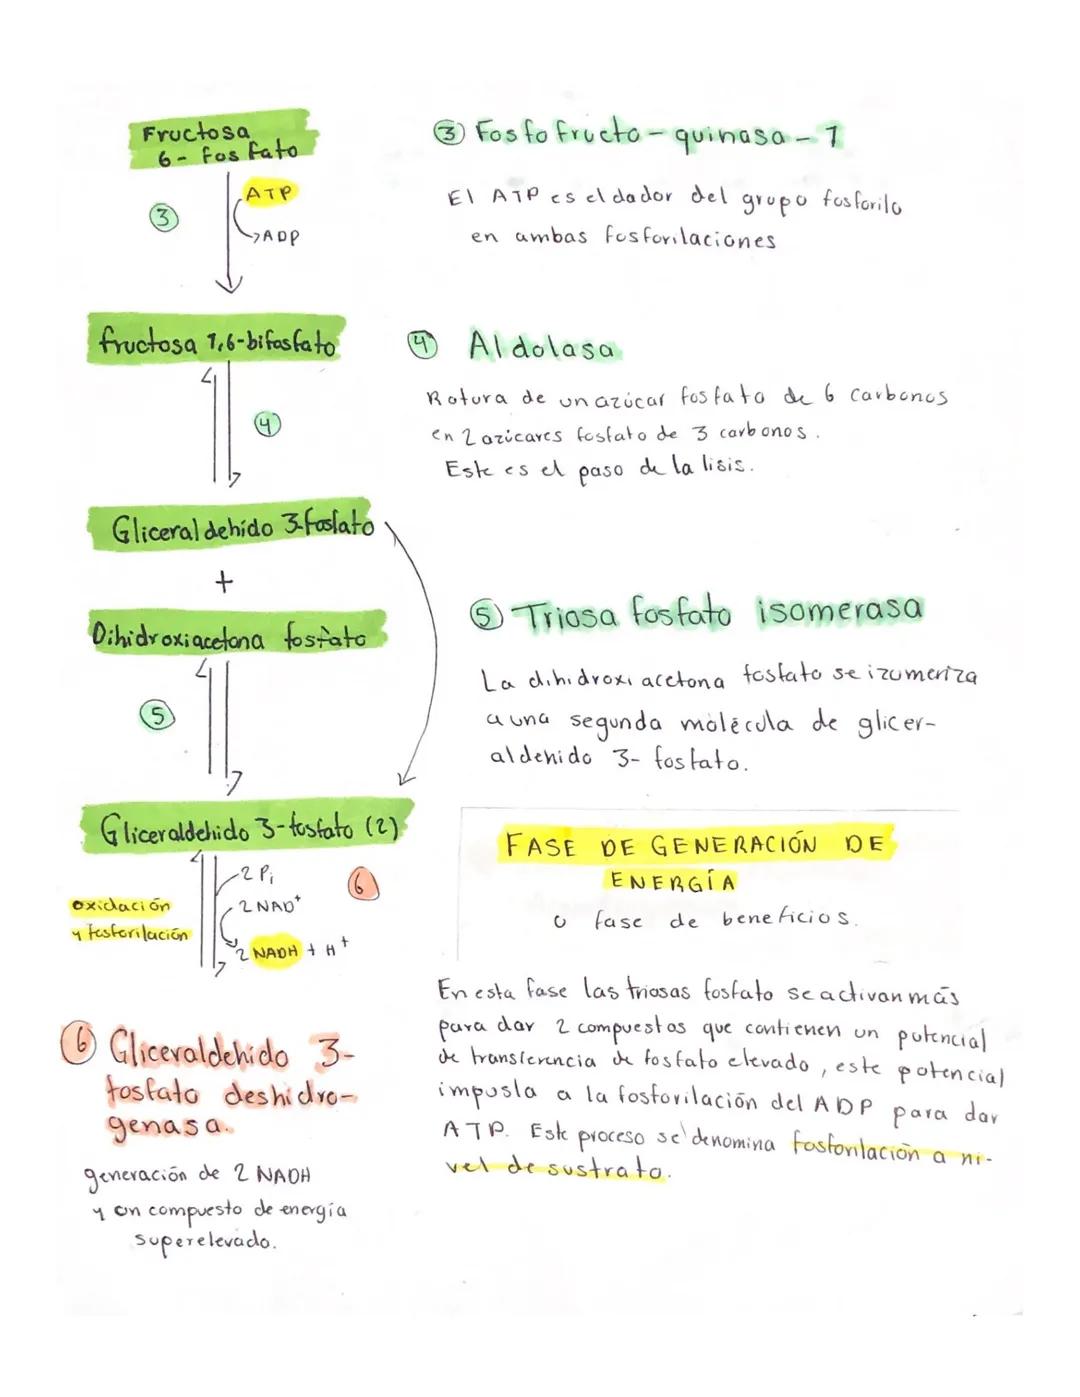 Fructosa
6- fosfato
ATP
3
ADP
③ Fosfofructo-quinasa-1
El ATP es el dador del grupo fosforilo
en ambas fosforilaciones
fructosa 1,6-bifosfato
4
④ Aldolasa
Rotura de un azúcar fosfato de 6 carbonos
en 2 azúcares fosfato de 3 carbonos.
Este es el paso de la lisis.
Gliceraldehído 3-fosfato
+
Dihidroxiacetona fosfato
5
⑤ Triosa fosfato isomerasa
La dihidroxiacetona fosfato se izomeriza
a una segunda molécula de glicer-
aldehido 3- fosfato.
Gliceraldehido 3-fosfato (2)
2 Pi
6
oxidación
y fosforilación
2 NAD+
2 NADH + H+
FASE DE GENERACIÓN DE
ENERGÍA
o fase de beneficios.
En esta fase las triosas fosfato se activan más
para dar 2 compuestos que contienen un potencial
de transferencia de fosfato elevado, este potencial
impusla a la fosforilación del ADP para dar
ATP. Este proceso se denomina fosforilación a ni-
vel de sustrato.
⑥ Gliceraldehido 3-
fosfato deshidro-
genasa.
generación de 2 NADH
y un compuesto de energía
superelevado.